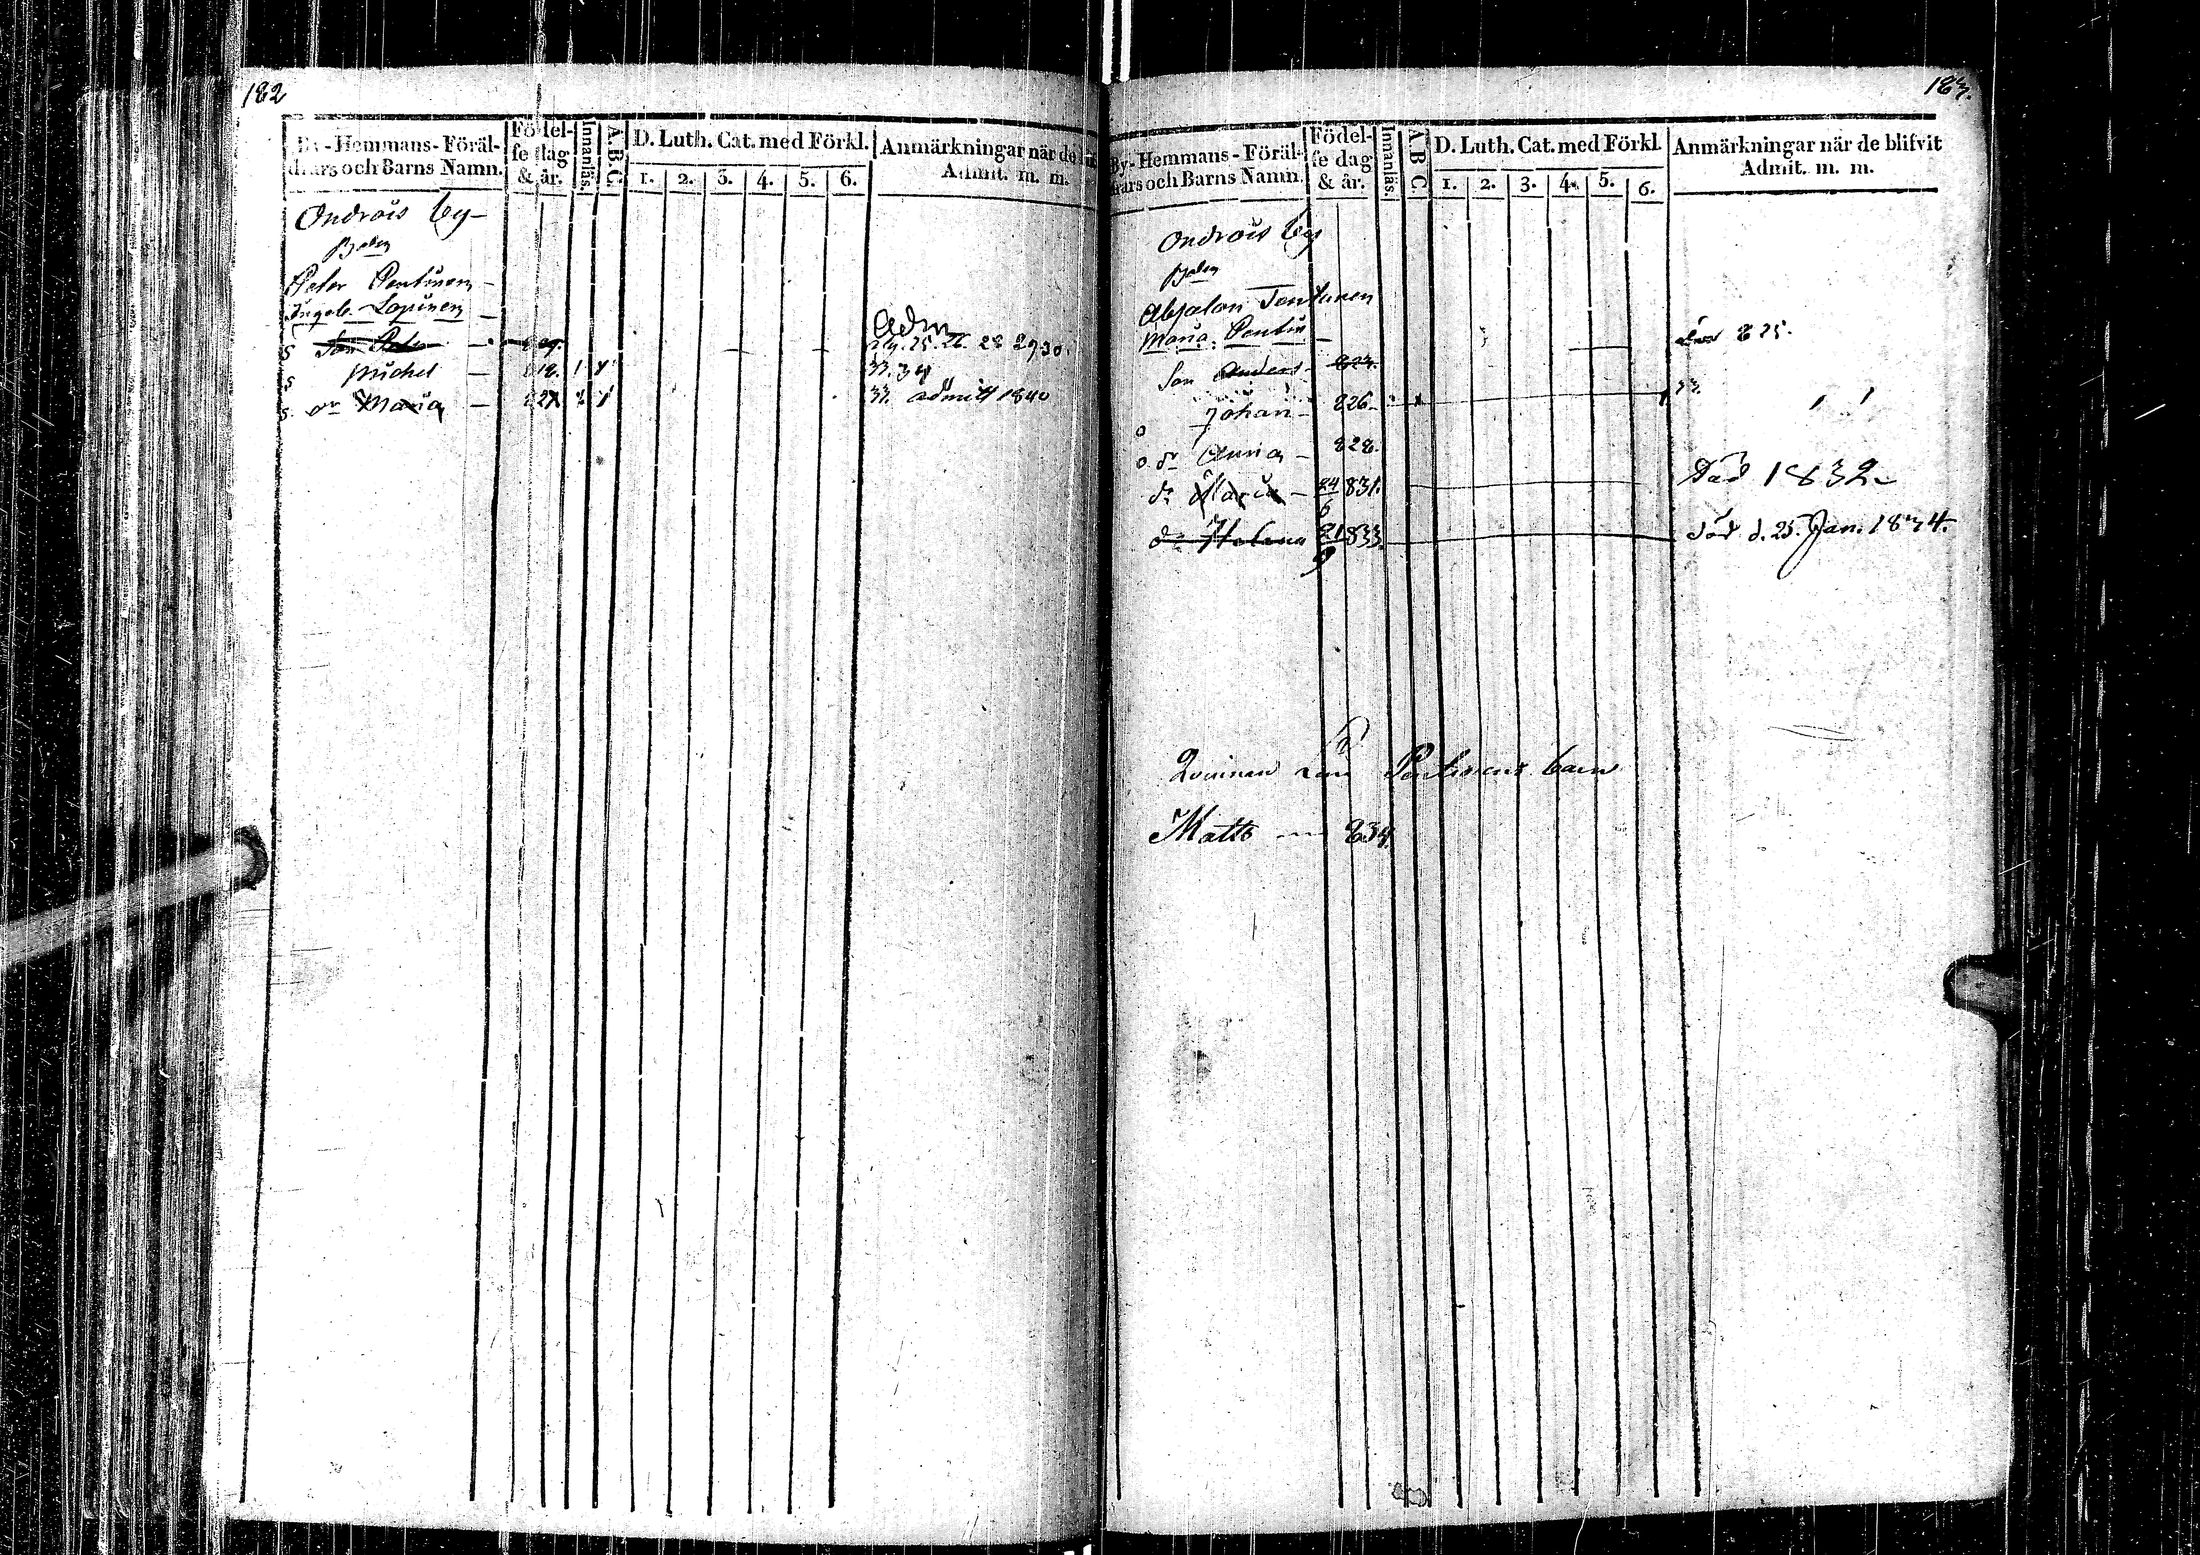 182
By-Hemmans-Föräl-
drars och Barns Namn.
Födel-
se dag
& år.
Innanläs.
A.B.C.
D. Luth. Cat. med Förkl.
1. 2. 3. 4. 5. 6.
Anmärkningar när de
Admit. m. m.
Ondrois by
Peter Pentinen
Ingeb. Lapinen
Son 809.
Adm
25. 26. 28 29 30.
S Michel 818. 1
33. 34
S dr Maria
33. admitt 1840
183.
By-Hemmans-Föräl-
drars och Barns Namn.
Födel-
se dag
& år.
Innanläs.
A.B.C.
D. Luth. Cat. med Förkl.
1. 2. 3. 4. 5. 6.
Anmärkningar när de blifvit
Admit. m. m.
Ondrois by
Absalon Tontunen
Maria Pentin
Son Anders 823.
825.
o Johan 826
33.
o dr Anna 828.
dr Maria 24/6 831.
Död 1832
dr Helena 21/9 833.
död d. 25. Jan. 1834.
Qvinnan Pentinens barn
Matts 834.